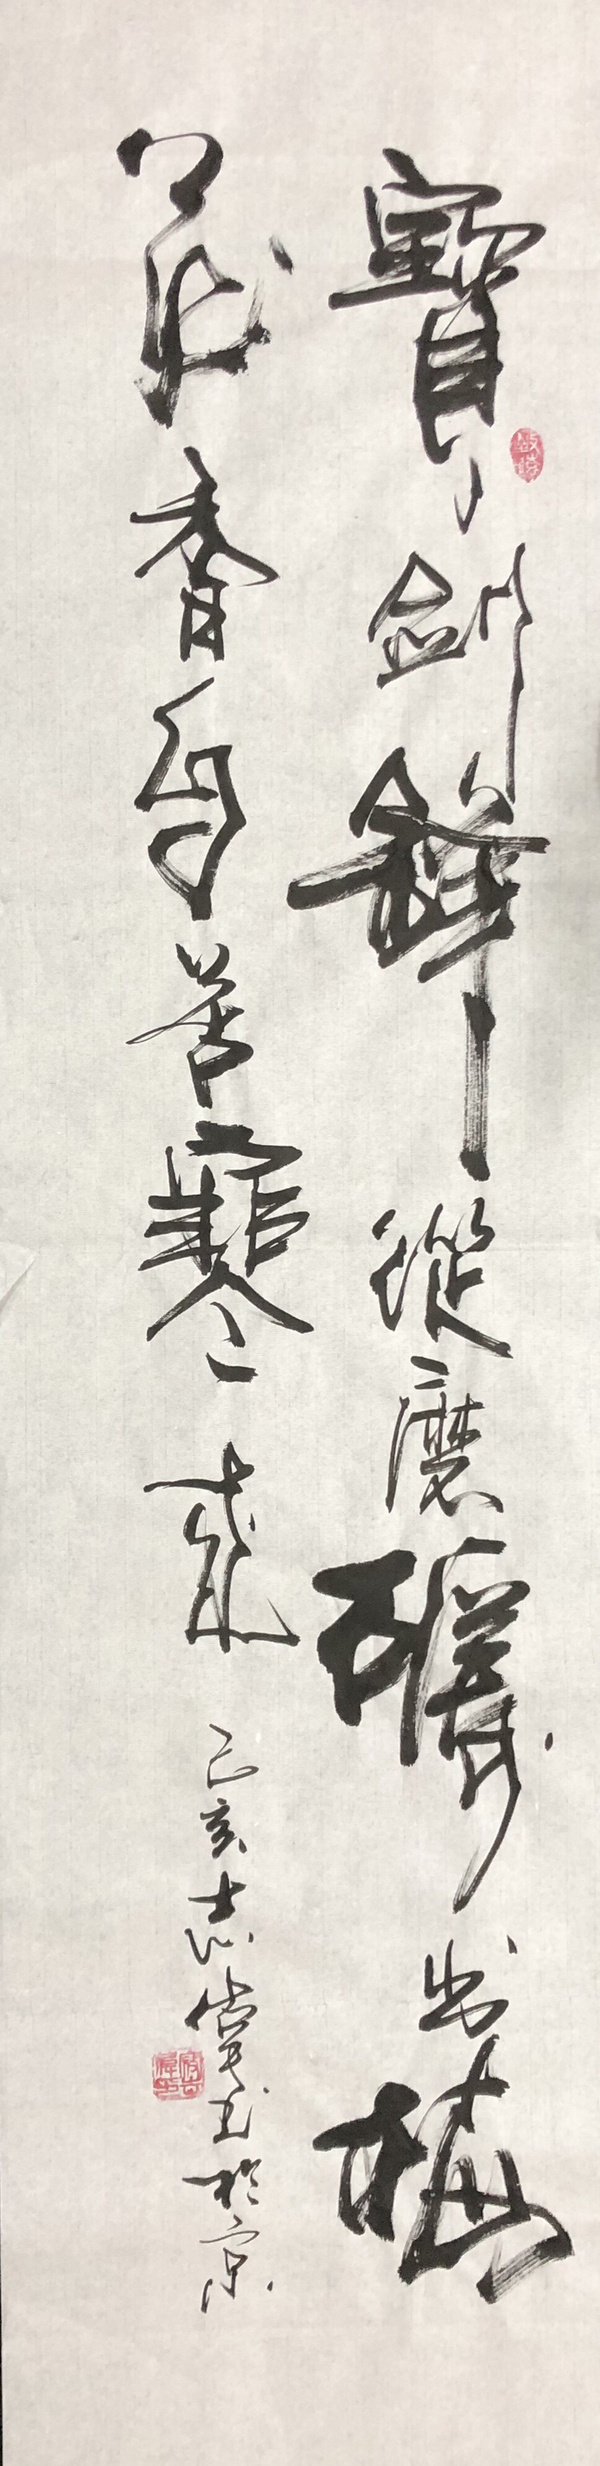 寶劍鋒從磨礪出梅
花香自苦寒來
己亥志傑書於京